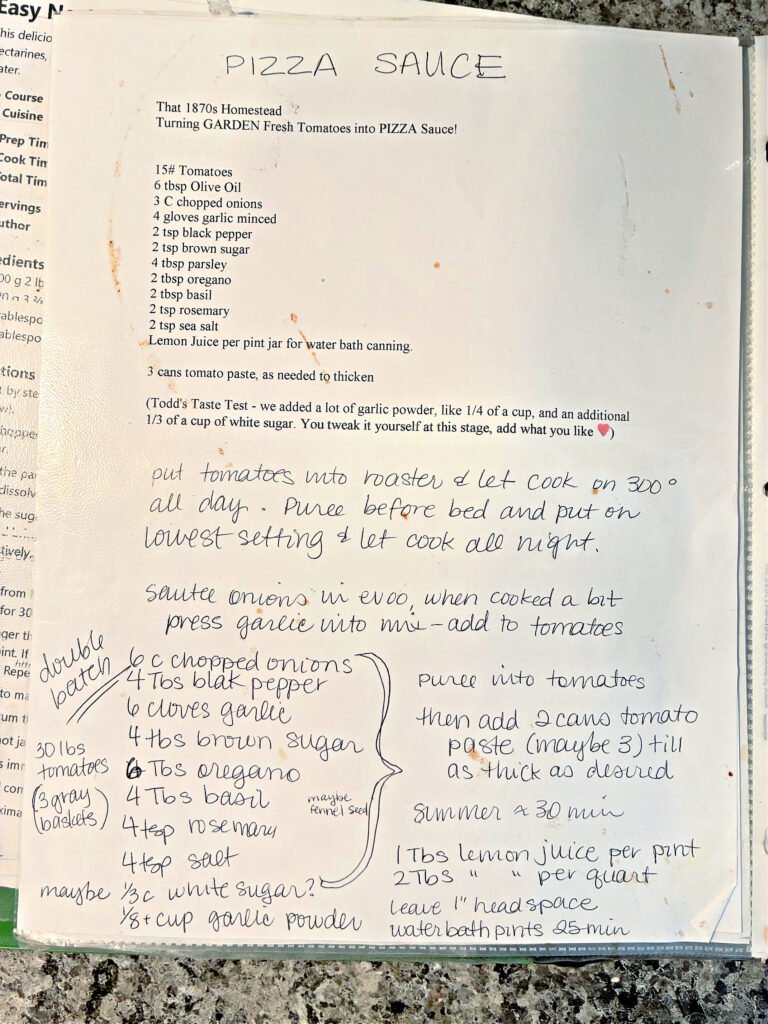 Easy N
his delicio
ectarines,
ater.
Course
Cuisine
Prep Tim
Cook Tim
otal Tim
ervings
uthor
edients
00 g 2 lb
ablespo
ablespo
tions
t by ste
w).
hopper
r.
the pa
dissolv
he sug
tively,
from
for 30
ger th
int. If
Repe
to ma
um t
ot ja
s im
con
xima
PIZZA SAUCE
That 1870s Homestead
Turning GARDEN Fresh Tomatoes into PIZZA Sauce!
15# Tomatoes
6 tbsp Olive Oil
3 C chopped onions
4 gloves garlic minced
2 tsp black pepper
2 tsp brown sugar
4 tbsp parsley
2 tbsp oregano
2 tbsp basil
2 tsp rosemary
2 tsp sea salt
Lemon Juice per pint jar for water bath canning.
3 cans tomato paste, as needed to thicken
(Todd's Taste Test - we added a lot of garlic powder, like 1/4 of a cup, and an additional
1/3 of a cup of white sugar. You tweak it yourself at this stage, add what you like ❤)
put tomatoes into roaster & let cook on 300°
all day. Puree before bed and put on
lowest setting & let cook all night.
sautee onions in evoo, when cooked a bit
press garlic into mix - add to tomatoes
double
batch
30 lbs
tomatoes
(3 gray
baskets)
6 c chopped onions
4 Tbs blak pepper
6 cloves garlic
4 tbs brown sugar
6 Tbs oregano
4 Tbs basil
maybe
fennel seed
4 tsp rosemary
4 tsp salt
maybe 1/3 c white sugar?
1/8 + cup garlic powder
puree into tomatoes
then add 2 cans tomato
paste (maybe 3) till
as thick as desired
summer ≈ 30 min
1 Tbs lemon juice per pint
2 Tbs " " per quart
leave 1" headspace
waterbath pints 25 min